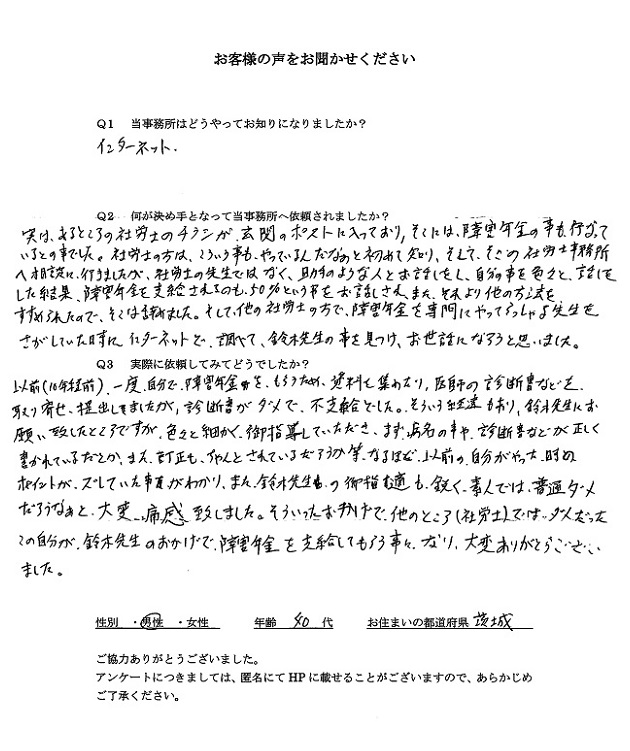 お客様の声をお聞かせください
Q1 当事務所はどうやってお知りになりましたか?
インターネット.
Q2 何が決め手となって当事務所へ依頼されましたか?
実は、あるところの社労士のチラシが、玄関のポストに入っており、そこには、障害年金の事も行なって
いるとの事でした。社労士の方は、こういう事も、やっているんだなぁと初めて知り、そして、そこの社労士事務所
へ相談に、行きましたが、社労士の先生では なく、助手のような人とお話しをし、自分の事を色々と、話しを
した結果、障害年金を支給されるのも、50%という事をお話しされ、また、それより他の方法を
すすめられたので、そこは諦めました。そして、他の社労士の方で、障害年金を専門にやってらっしゃる先生を
さがしていた時に インターネットで、調べて、鈴木先生の事を見つけ、お世話になろうと思いました。
Q3 実際に依頼してみてどうでしたか?
以前(10年程前)、一度、自分で、障害年金を、もらうため、資料を集めたり、医師の診断書などを、
取り寄せ、提出しましたが、診断書がダメで、不支給でした。そういう経過もあり、鈴木先生にお
願い致したところですが、色々と細かく、御指導していただき、まず、病名の事や、診断書などが正しく
書かれているだとか、また、訂正も、ちゃんとされているだろうか等、なるほど、以前の、自分がやった時の
ポイントが、ズレていた事がわかり、また、鈴木先生の御指摘も、鋭く、素人では、普通ダメ
だろうなぁと、大変、痛感致しました。そういったおかげで、他のところ(社労士)では、ダメだった
この自分が、鈴木先生のおかげで、障害年金を支給してもらう事に、なり、大変ありがとうござい
ました。
性別 ・男性 ・女性 年齢 40 代 お住まいの都道府県 茨城
ご協力ありがとうございました。
アンケートにつきましては、匿名にて HP に載せることがございますので、あらかじめ
ご了承ください。